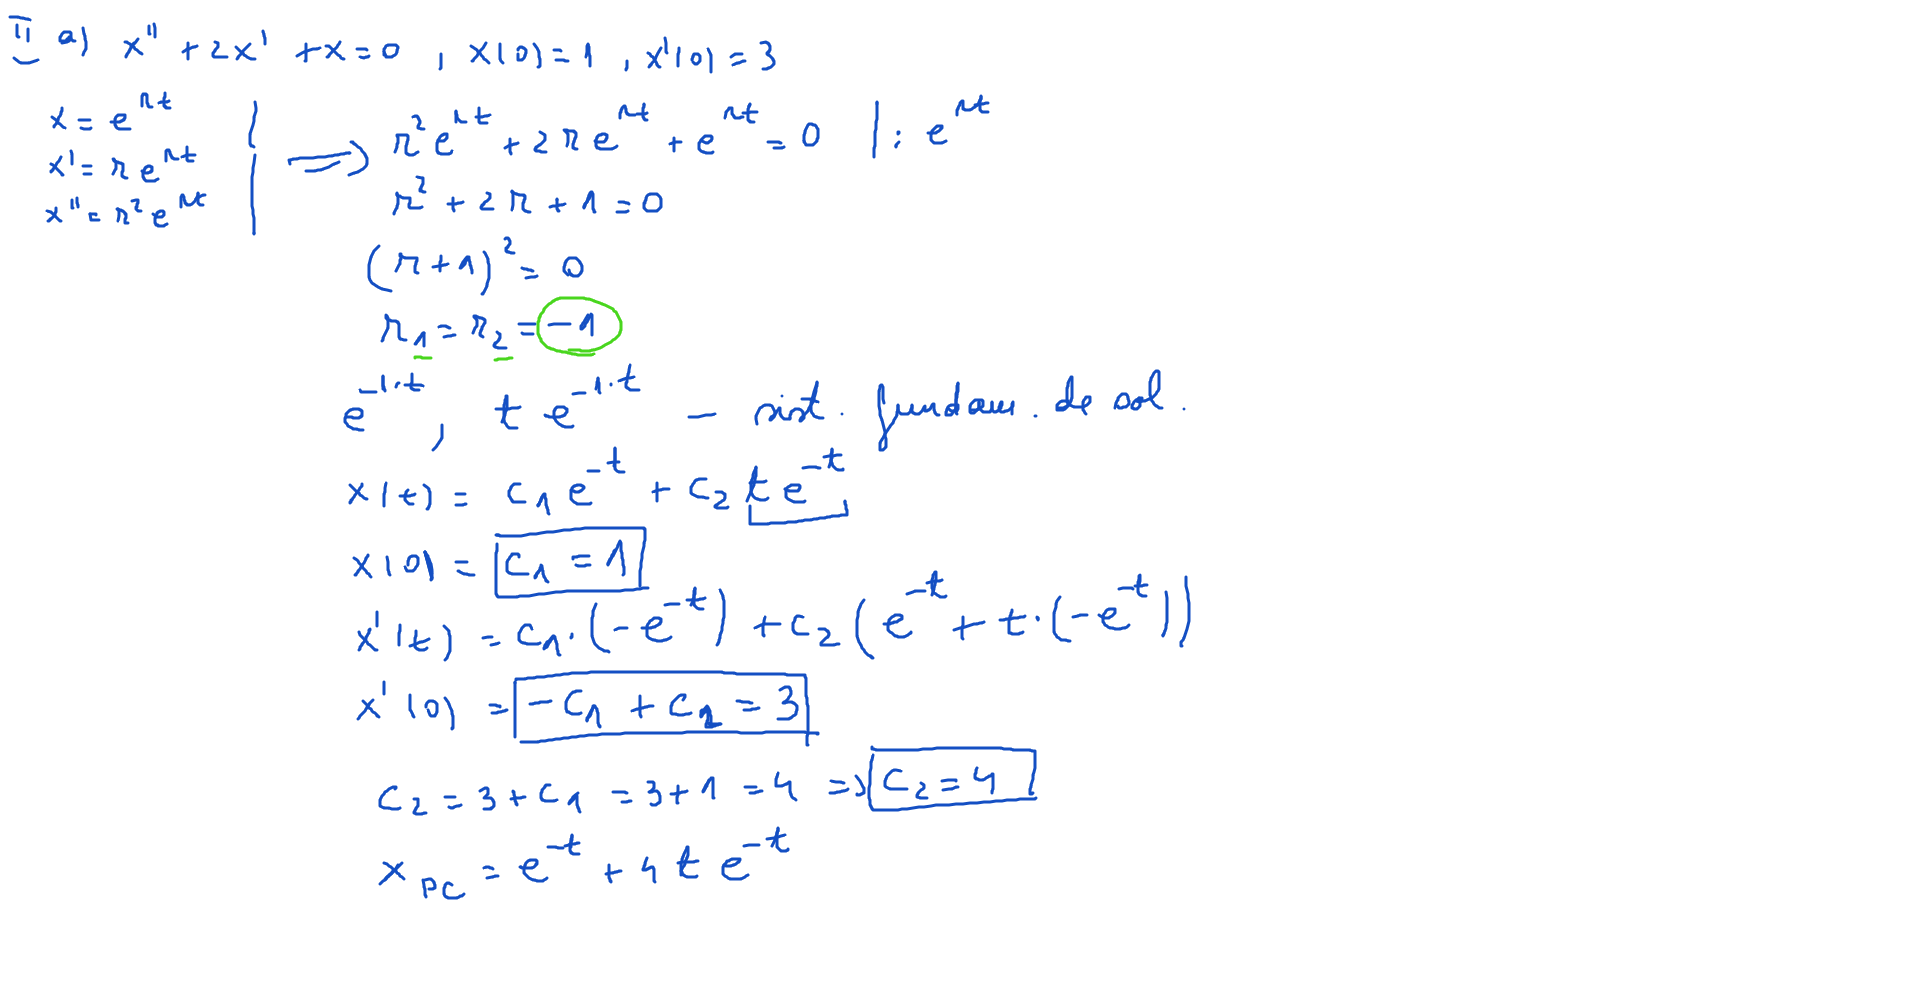 II a) x'' + 2x' + x = 0 , x(0) = 1 , x'(0) = 3
x = e^{rt}
x' = r e^{rt}
x'' = r² e^{rt}
=> r² e^{rt} + 2 r e^{rt} + e^{rt} = 0 | : e^{rt}
r² + 2r + 1 = 0
(r + 1)² = 0
r₁ = r₂ = -1
e^{-1·t} , t e^{-1·t} - sist. fundam. de sol.
x(t) = c₁ e^{-t} + c₂ t e^{-t}
x(0) = c₁ = 1
x'(t) = c₁·(-e^{-t}) + c₂ (e^{-t} + t·(-e^{-t}))
x'(0) = -c₁ + c₂ = 3
c₂ = 3 + c₁ = 3 + 1 = 4 => c₂ = 4
x_{PC} = e^{-t} + 4 t e^{-t}